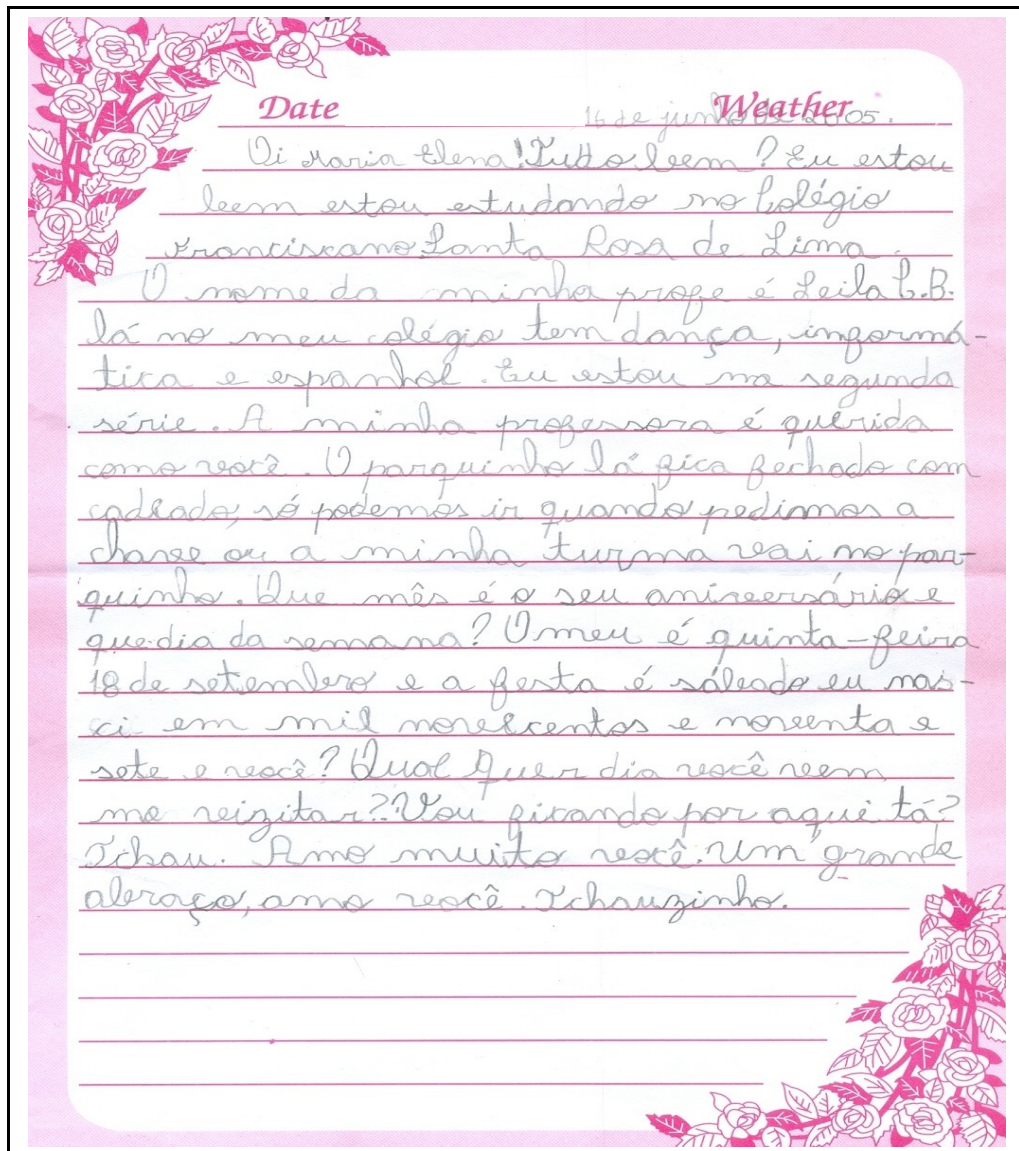 Date Weather
16 de junho de 2005.
Oi Maria Elena! Tudo bem? Eu estou
bem estou estudando no Colégio
Franciscano Santa Rosa de Lima.
O nome da minha profe é Leila C.B.
lá no meu colégio tem dança, informá-
tica e espanhol. Eu estou na segunda
série. A minha professora é quérida
como você. O parquinho lá fica fechado com
cadeado, só podemos ir quando pedimos a
chave ou a minha turma vai no par-
quinho. Que mês é o seu aniversário e
que dia da semana? O meu é quinta-feira
18 de setembro e a festa é sábado eu nas-
ci em mil novescentos e noventa e
sete e você? Qual quer dia você vem
me vizitar? Vou ficando por aqui tá?
Tchau. Amo muito você. Um grande
abraço, amo você. Tchauzinho.